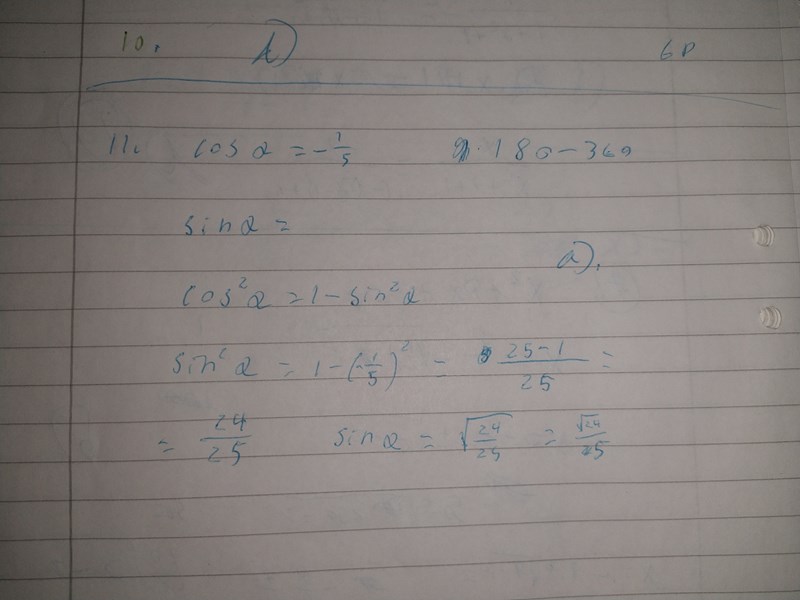 10. d) 6P
11. cos α = -1/5 180-360
sin α =
a).
cos²α = 1 - sin²α
sin²α = 1-(-1/5)² = 25-1/25 =
= 24/25 sin α = √24/25 = √24/25